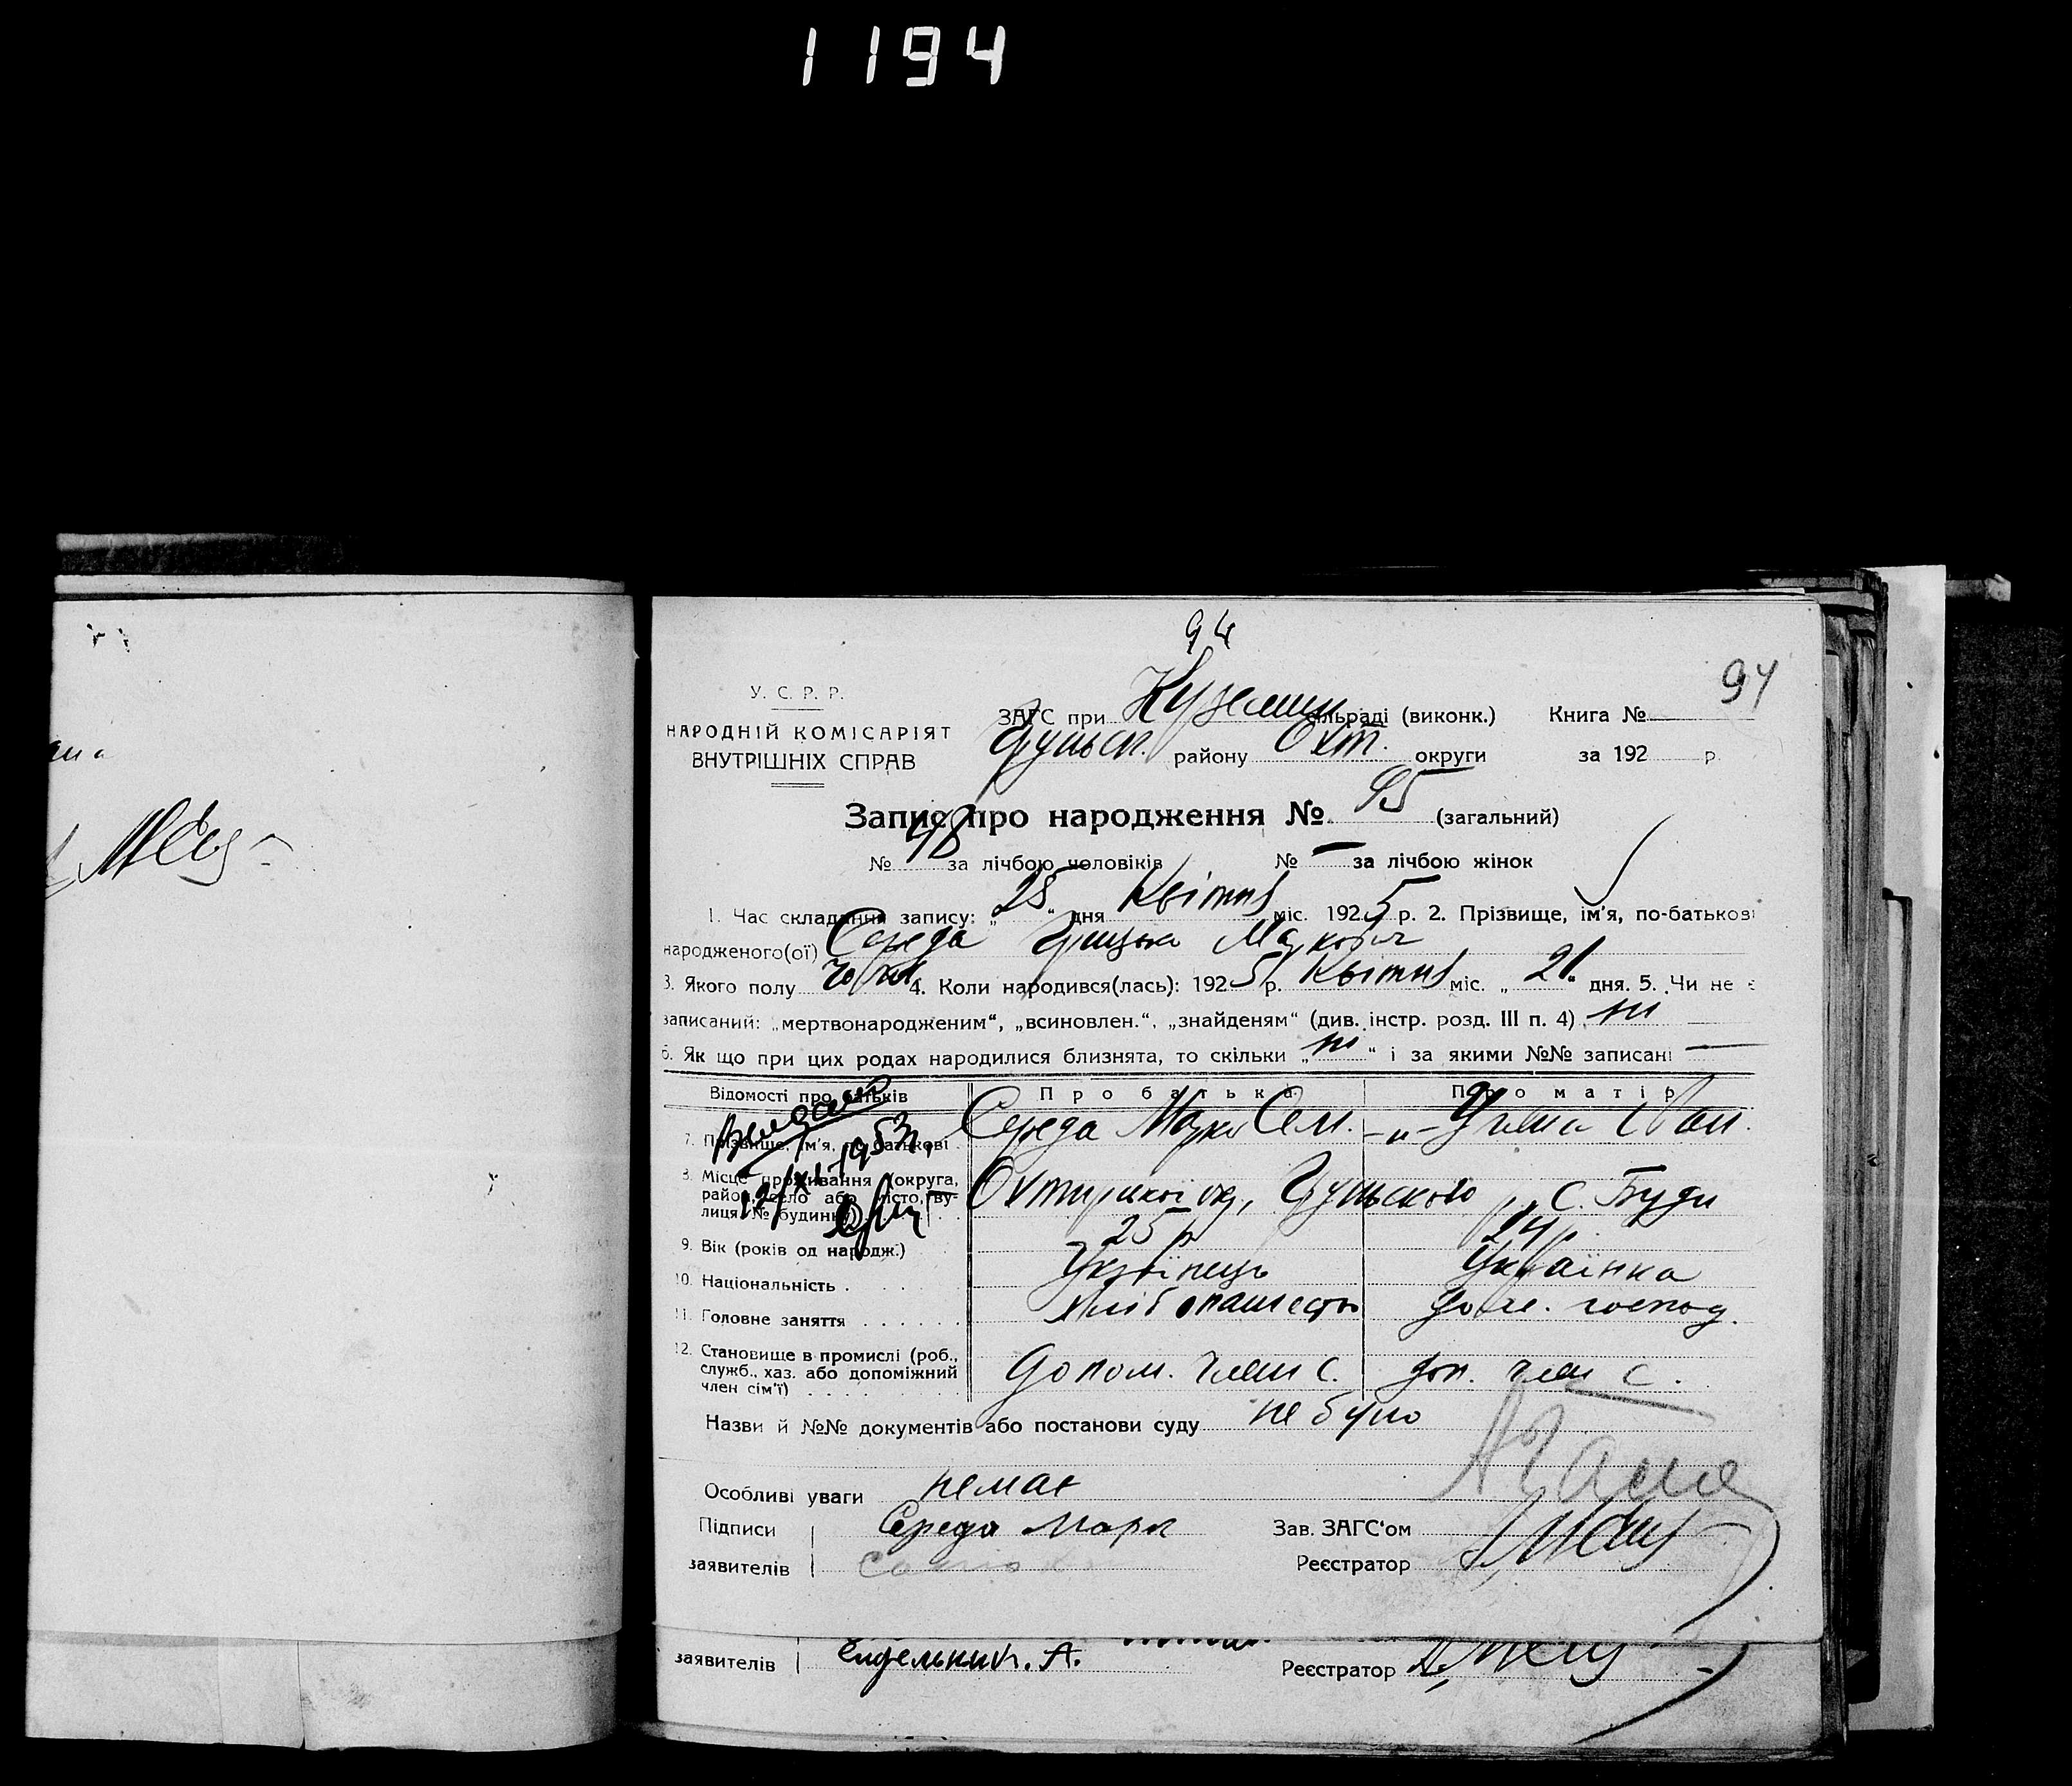 1194
94
94
У. С. Р. Р.
НАРОДНІЙ КОМІСАРІЯТ
ВНУТРІШНІХ СПРАВ
ЗАГС при Куземин сільраді (виконк.) Книга №
Грунськ. району Охт. округи за 192 р.
Запис про народження № 95 (загальний)
№ 48 за лічбою чоловіків № — за лічбою жінок
1. Час складання запису: „28“ дня Квітня міс. 1925 р. 2. Прізвище, ім'я, по-батькові
народженого(ої) Середа Грицько Маркович
3. Якого полу чолов. 4. Коли народився(лась): 1925 р. Квітня міс. „21“ дня. 5. Чи не є
записаний: „мертвонародженим“, „всиновлен.“, „знайденям“ (див. інстр. розд. III п. 4) ні
6. Як що при цих родах народилися близнята, то скільки „ні“ і за якими №№ записані —
Відомості про батьків Про батька Про матір
7. Прізвище, ім'я, по-батькові Середа Марко Сем. -"- Уляна
12/XI-1953
8. Місце проживання (округа, район, село або місто, вулиця, № будинку) Охтирської ок, Грунського р, с. Буди
9. Вік (років од народж.) 25 р 24 р
10. Національність Українець Українка
11. Головне заняття хліборашество дом. господ.
12. Становище в промислі (роб., служб., хаз. або допоміжний член сім'ї) Допом. член с. доп. член с.
Назви й №№ документів або постанови суду не було
Особливі уваги немає
Підписи Середа Марк Зав. ЗАГС'ом
заявителів Реєстратор
заявителів А. Реєстратор